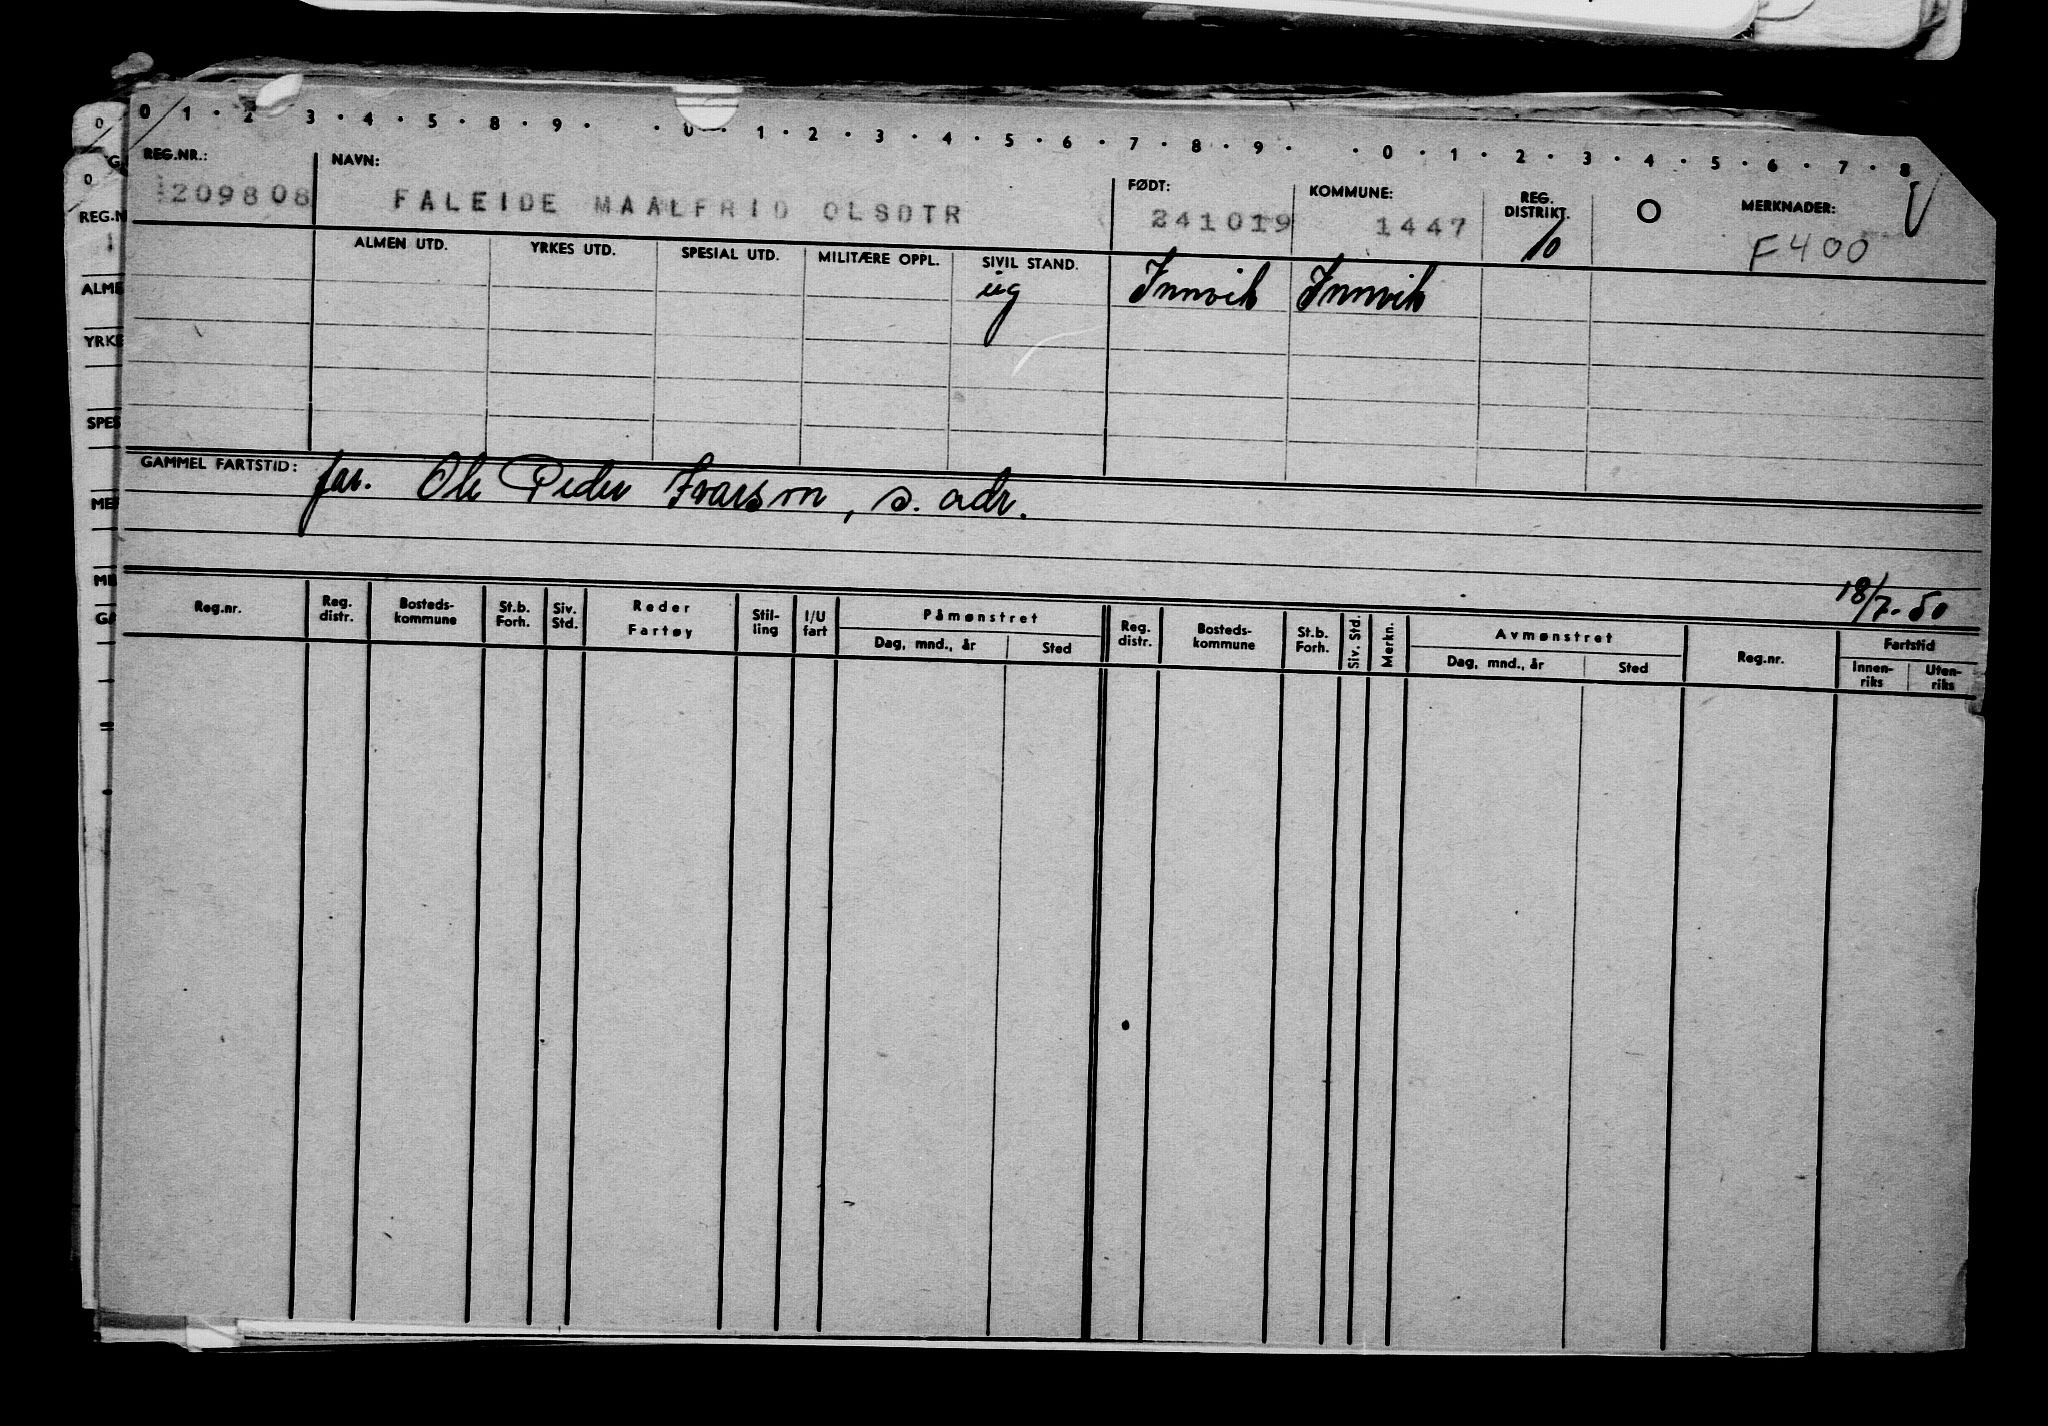 0 1 · 2 3 · 4 · 5 · 8 · 9 · · 0 · 1 · 2 · 3 · 4 · 5 · 6 · 7 · 8 · 9 · · 0 · 1 · 2 · 3 · 4 · 5 · 6 · 7 · 8
REG.NR.: NAVN: FØDT: KOMMUNE: REG. DISTRIKT. O MERKNADER: V
209808 FALEIDE MAALFRID OLSDTR 241019 1447 10 F400
ALMEN UTD. YRKES UTD. SPESIAL UTD. MILITÆRE OPPL. SIVIL STAND.
ug Innvik Innvik
GAMMEL FARTSTID: far. Ole Peder Ivarson, s. adr.
18/7-50
Reg.nr. Reg. distr. Bosteds-kommune St.b. Forh. Siv. Std. Reder Fartøy Stil-ling I/U fart Påmønstret Reg. distr. Bosteds-kommune St.b. Forh. Siv. Std. Merkn. Avmønstret Reg.nr. Fartstid
Dag, mnd., år Sted Dag, mnd., år Sted Innen-riks Uten-riks
0
0
REG.N
ALME
YRKE
SPES